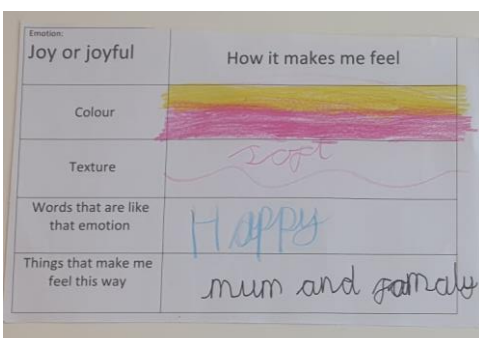 Emotion:
Joy or joyful
How it makes me feel
Colour
Texture
soft
Words that are like
that emotion
Happy
Things that make me
feel this way
mum and famaly